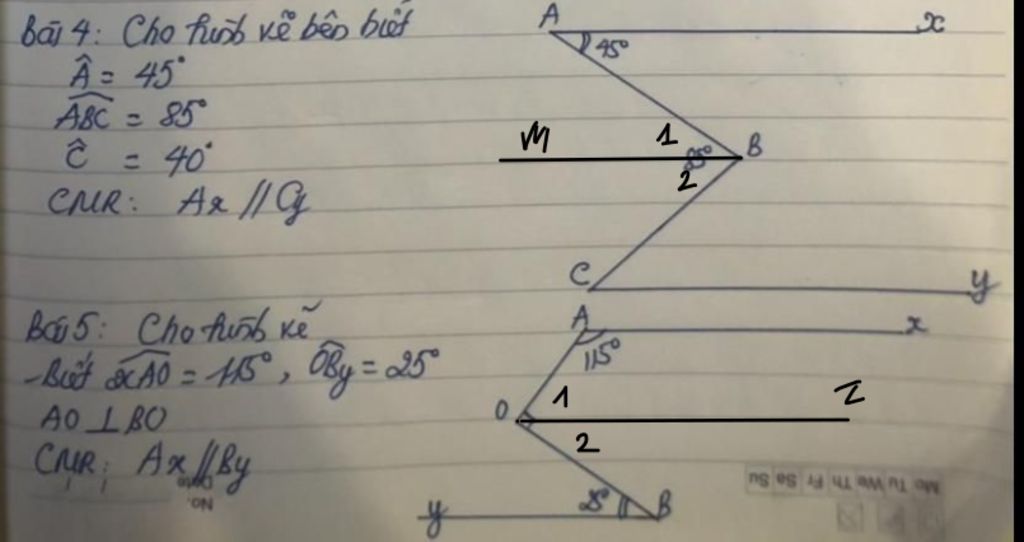 Bài 4: Cho hình vẽ bên biết
Â = 45°
ABC = 85°
Ĉ = 40°
CMR: Ax // Cy
A
x
45°
M
1
85°
B
2
C
y
Bài 5: Cho hình vẽ
- Biết xAO = 115°, OBy = 25°
AO ⊥ BO
CMR: Ax // By
A
x
115°
O
1
z
2
25°
y
B
Mo Tu We Th Fr Sa Su
Date
No.